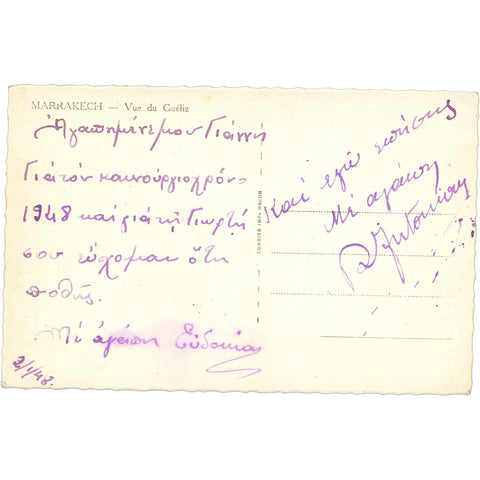 MARRAKECH — Vue du Guéliz
Αγαπημένε μου Γιάννη
Γιά τόν καινούργιο χρόν-
1948 καί γιά τη Γιωρτή
σου εύχομαι ό τη
ποθής.
Μέ αγάπη Ευδοκία
2/1/48.
COMBIER IMP. MACON
Καί εγώ επίσης
Μέ αγάπη